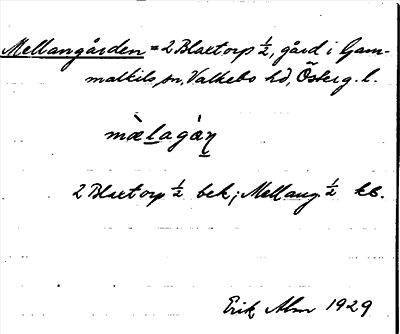 Mellangården = 2 Blaxtorp ½, gård i Gam-
malkils sn, Valkebo hd, Österg. l.
mæ̀lagá̀ṉ
2 Blaxtorp ½ bek; Mellang. ½ kb.
Erik Alm 1929